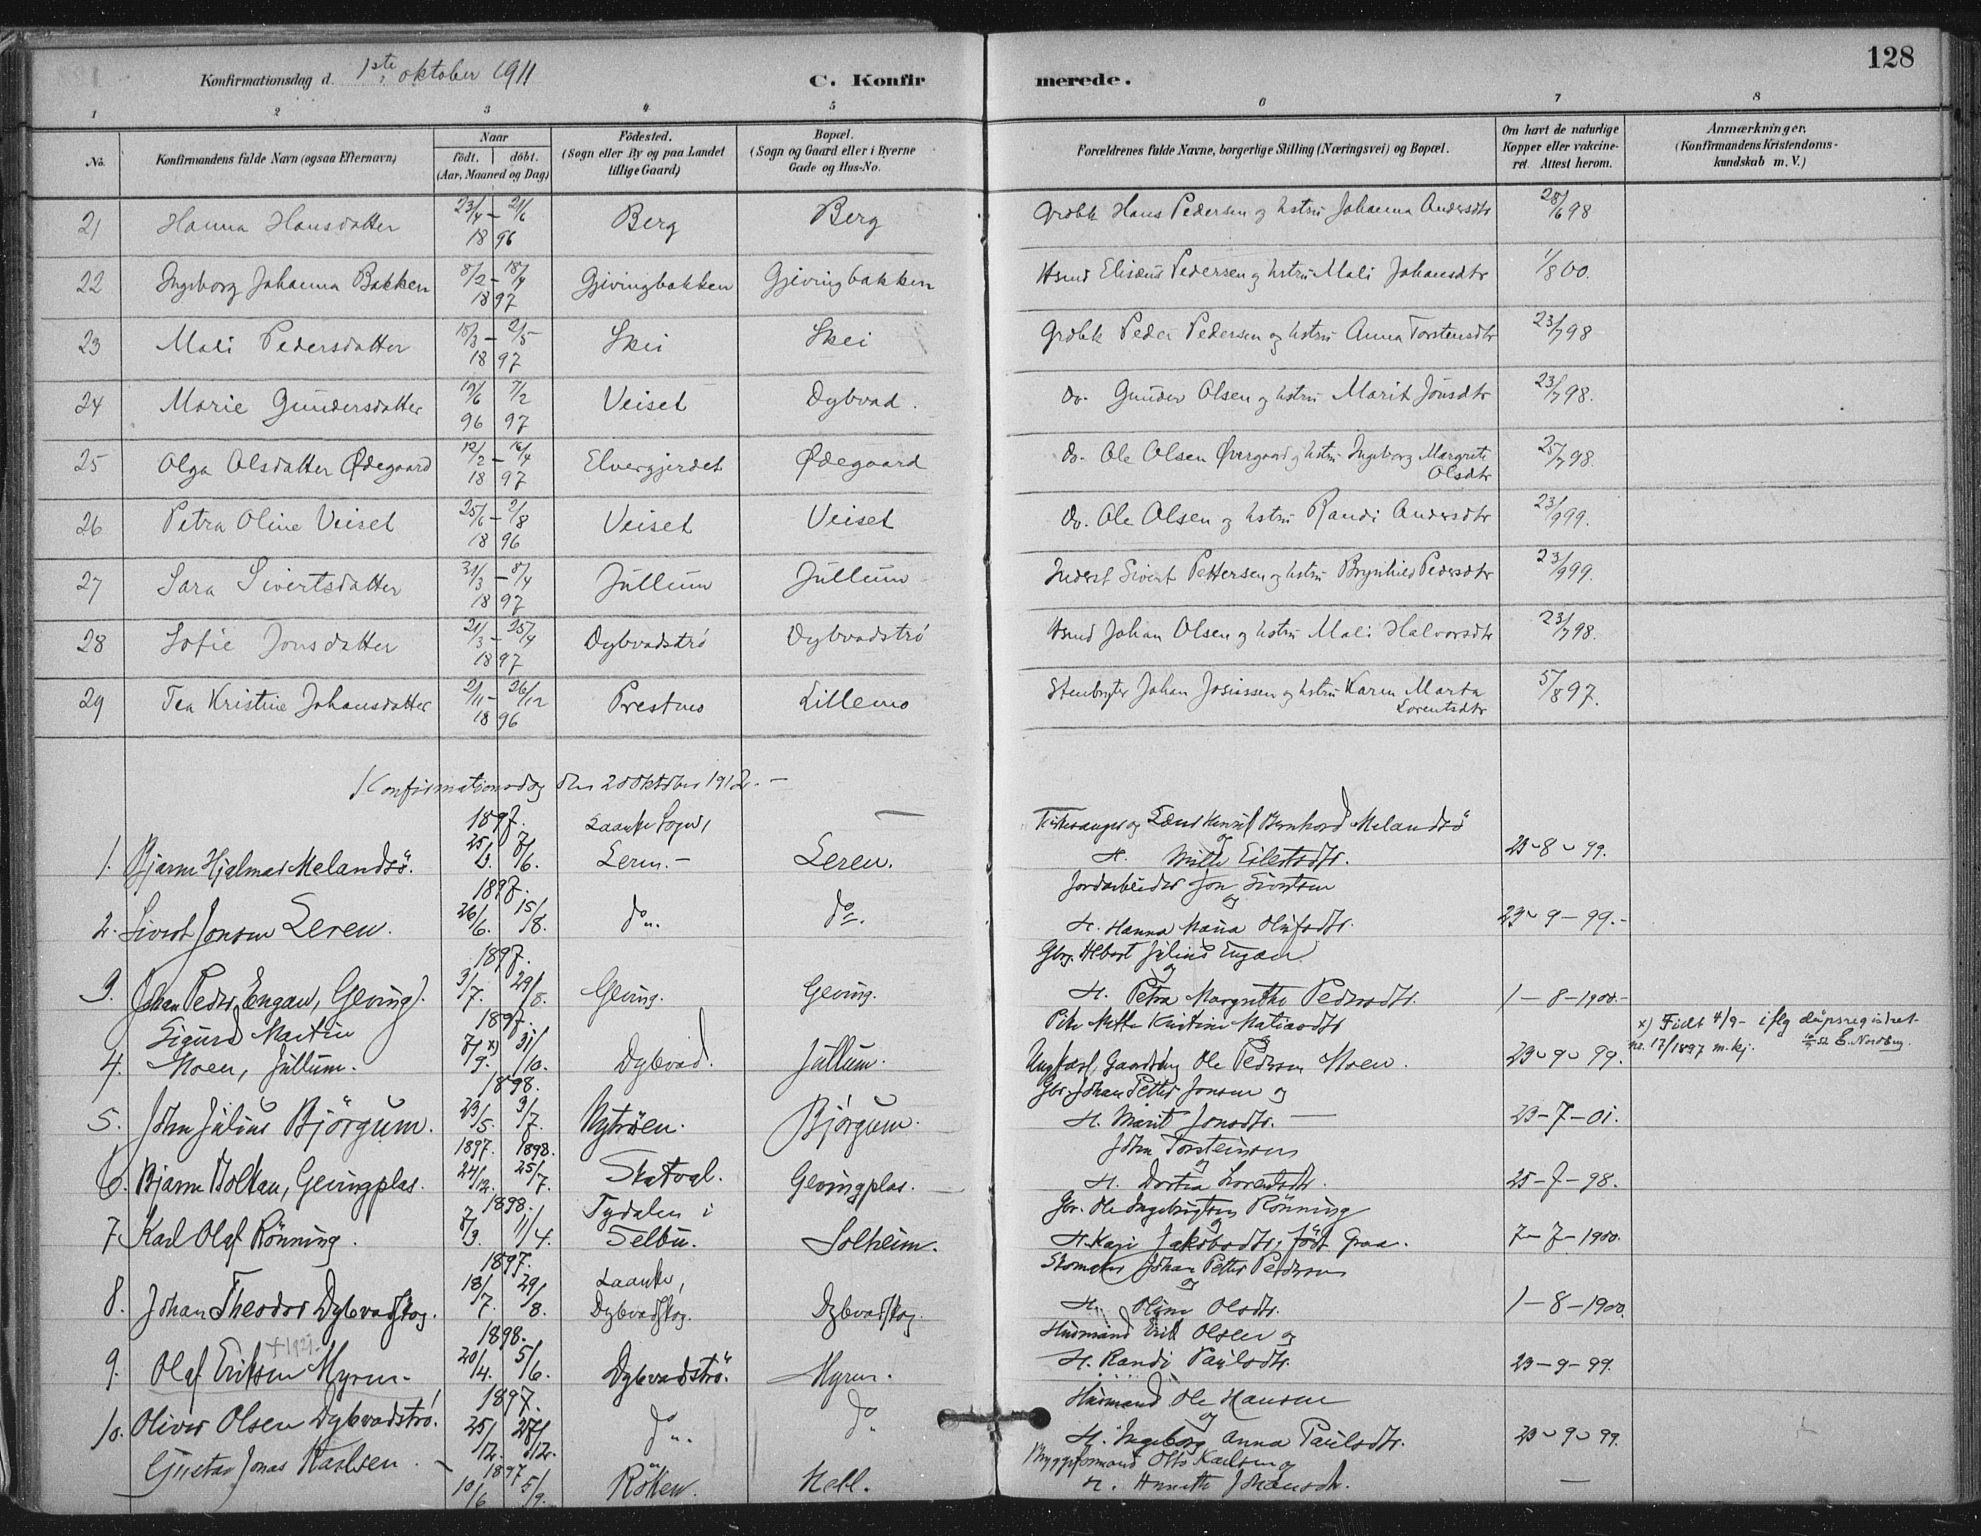 128
Konfirmationsdag d. 1ste oktober 1911
C. Konfirmerede.
1 2 3 4 5 6 7 8
No.
Konfirmandens fulde Navn (ogsaa Efternavn)
Naar
födt. döbt.
(Aar, Maaned og Dag)
Födested.
(Sogn eller By og paa Landet
tillige Gaard)
Bopæl.
(Sogn og Gaard eller i Byerne
Gade og Hus-No.
Forældrenes fulde Navne, borgerlige Stilling (Næringsvei) og Bopæl.
Om havt de naturlige
Kopper eller vakcine-
ret. Attest herom.
Anmærkninger.
(Konfirmandens Kristendoms-
kundskab m. V.)
21 Hanna Hansdatter 23/4 – 21/6 1896 Berg Berg Grdbk Hans Pedersen og hstru Johanna Andersdtr 28/6 98
22 Ingeborg Johanna Bakken 8/2 – 18/4 1897 Gjevingbakken Gjevingbakken Hsmd Eliseus Pedersen og hstru Mali Johansdtr 1/8 00.
23 Mali Pedersdatter 15/3 – 2/5 1897 Skei Skei Grdbk Peder Pedersen og hstru Anna Torstensdtr 23/7 98
24 Marie Gundersdatter 19/6 96 7/2 97 Veiset Dybvad. Do. Gunder Olsen og hstru Marit Jonsdtr 23/7 98.
25 Olga Olsdatter Ødegaard 12/2 – 16/4 1897 Elvergjerdet Ødegaard Do. Ole Olsen Øvergaard og hstru Ingeborg Margrete Olsdtr 25/7 98.
26 Petra Oline Veiset 25/6 – 2/8 1896 Veiset Veiset Do. Ole Olsen og hstru Randi Andersdtr 23/9 99.
27 Sara Sivertsdatter 31/3 – 8/4 1897 Jullum Jullum Inderst Sivert Pettersen og hstru Brynhild Pedersdtr 23/9 99.
28 Sofie Jonsdatter 21/3 – 25/4 1897 Dybvadströ Dybvadströ Hsmd Johan Olsen og hstru Mali Halvorsdtr 23/7 98.
29 Tea Kristine Johansdatter 2/11 – 26/12 1896 Prestmo Lillemo Stenbryter Johan Josiassen og hstru Karen Marta Lorentsdtr 5/8 97.
Konfirmationsdag den 20 oktober 1912. –
1897. Laanke Sogn, Kirkesanger og Lensmand Bernhard Melandsö
1. Bjarne Hjalmar Melandsö. 25/3. 8/6. Leren. – Leren. og H. Mille Eilertsdtr. 23-8-99.
1897. Jordarbeider Jon Sivertsen
2. Sivert Jonsen Leren. 26/6. 15/8. do. do. og H. Hanna Maria Olufsdtr. 23-9-99.-
1897. Gbr. Albert Julius Engan
3. Johan Peder Engan, Geving. 3/7. 29/8. Geving. Geving. og H. Petra Margrethe Pedersdtr. 1-8-1900.-
Sigurd Martin 1897. Pike Mette Kristine Matiasdtr
4. Moen, Jullum. 8/9. x) 31/10. Dybvad. Jullum. Ungkarl, Gaardbrug Ole Pedersen Moen. 23-9-99. x) Födt 4/9- iflg dåpsregistret nr. 17/1897 m.kj. E. Nordberg.
1898. Gbr. Johan Petter Jonsen og
5. John Julius Björgum. 23/5. 3/7. Nytröen. Björgum. H. Marit Jonsdtr. 23-7-01.
1897. 1898. John Torsteinsen
6. Bjarne Holtan, Gevingplas. 24/12. 25/7. Skatval. Gevingplas. og H. Dortea Lorentsdtr. 25-7-98.
1898. Tydalen i Gbr. Ole Ingebrigtsen Rönning
7. Karl Olaf Rönning. 8/3. 11/4. Selbu. Solheim. og H. Kari Jakobsdtr, födt Graa. 7-7-1900.
1897. Laanke, Skomaker Johan Petter Pedersen
8. Johan Theodor Dybvadskog. 18/7. 29/8. Dybvadskog. Dybvadskog. og H. Oline Olsdtr. 1-8-1900.
1898. Husmand Erik Olsen og
9. Olaf Eriksen Myren. 20/4. 5/6. Dybvadströ. Myren. H. Randi Paulsdtr. 23-9-99.
1897. Husmand Ole Hansen
10. Oliver Olsen Dybvadströ. 25/12. do do og H. Ingeborg Anna Paulsdtr. 23-9-99.
Gustav Jonas Karlsen. 1897 10/6 5/9. Röken. Hell. Byggformand Otto Karlsen og H. Annette Johansdtr. —